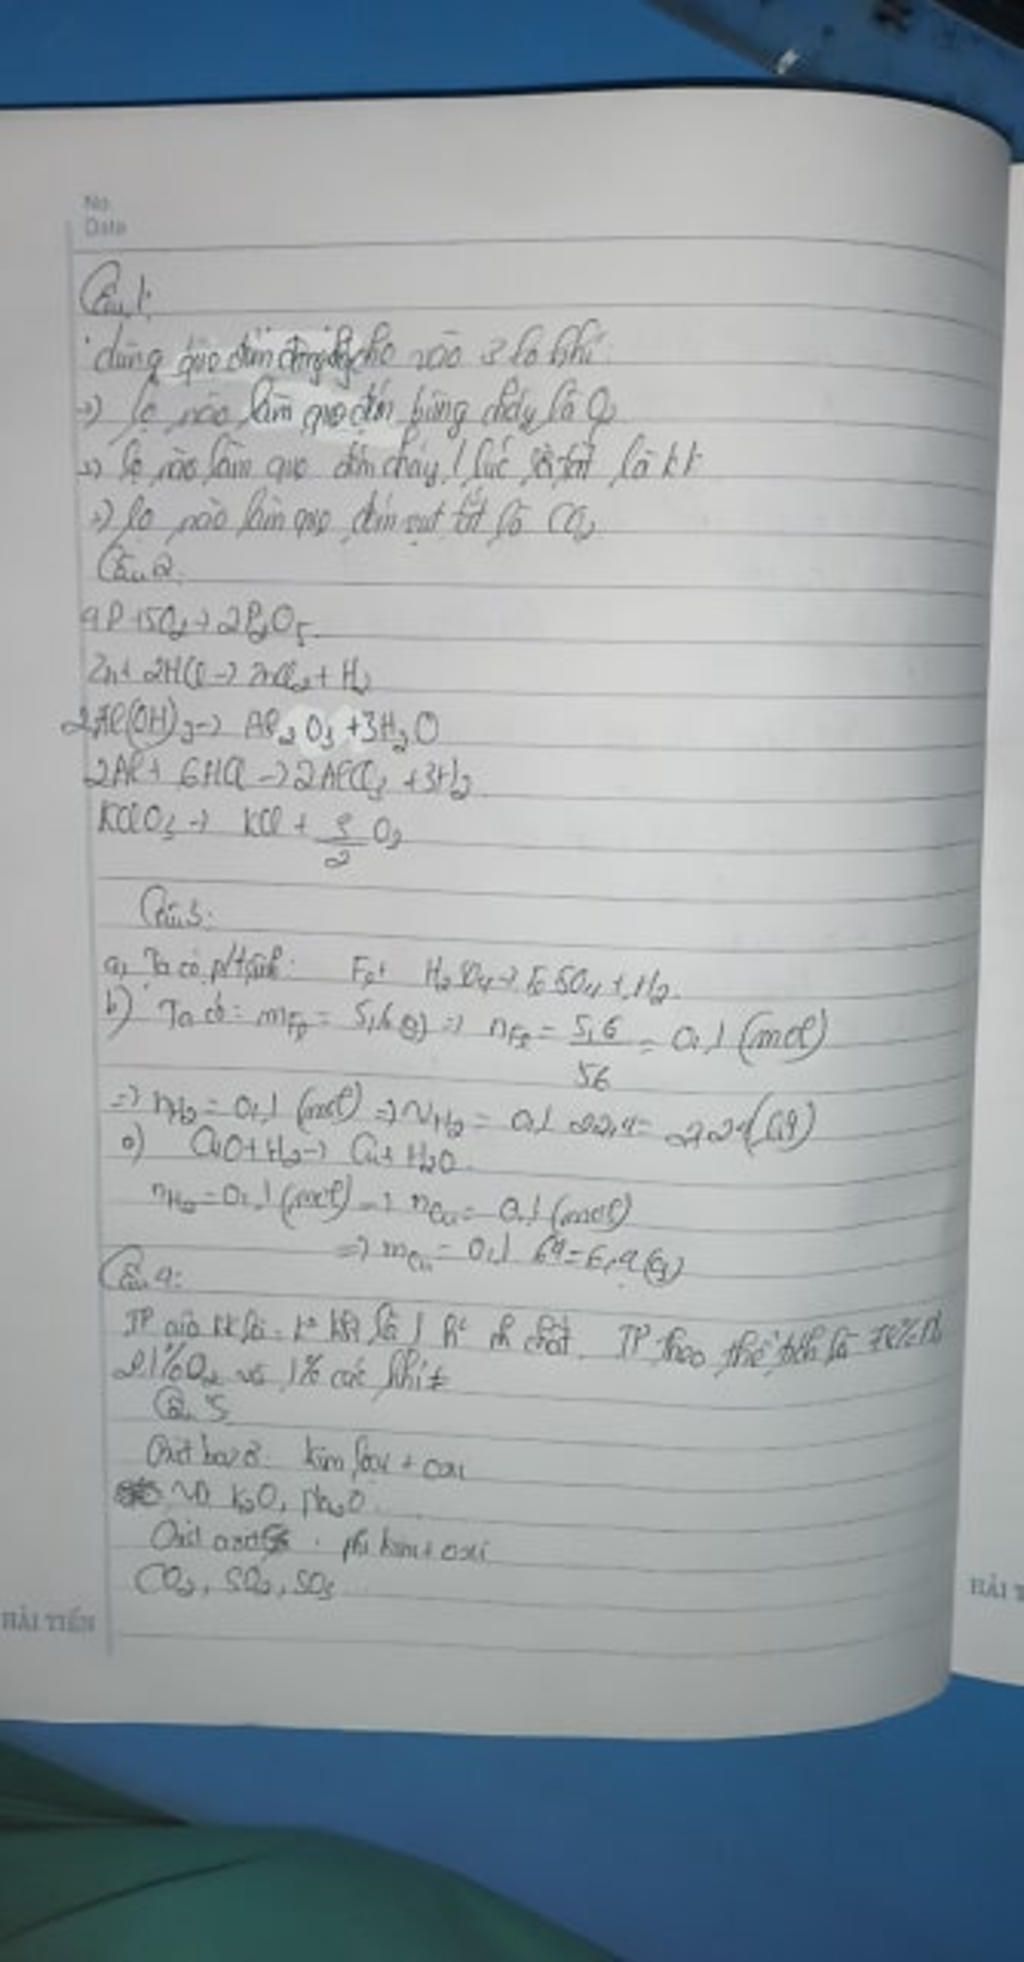 No.
Date
Câu 1:
dùng que đóm đang cho vào 3 lọ khí:
=> lọ nào làm que đóm bùng cháy là O2
=> lọ nào làm que đóm cháy 1 lúc rồi tắt là kk
=> lọ nào làm que đóm vụt tắt là CO2
Câu 2:
4P + 5O2 → 2P2O5
Zn + 2HCl → ZnCl2 + H2
2Al(OH)3 → Al2O3 + 3H2O
2Al + 6HCl → 2AlCl3 + 3H2
KClO3 → KCl + 3/2 O2
Câu 3:
a, Ta có : Fe + H2SO4 → FeSO4 + H2
b) Ta có: mFe = 5,6(g) => nFe = 5,6/56 = 0,1 (mol)
=> nH2 = 0,1 (mol) => VH2 = 0,1 . 22,4 = 2,24 (l)
c) CuO + H2 → Cu + H2O
nH2 = 0,1 (mol) → nCu = 0,1 (mol)
=> mCu = 0,1 . 64 = 6,4 (g)
Câu 4:
TP của kk là: k° khí là 1 h² . TP theo thể tích là 78% N2
21% O2 và 1% các khí ≠
Câu 5
Oxit bazơ: kim loại + oxi
VD K2O, Na2O
Oxit axit : phi kim + oxi
CO2, SO2, SO3
HẢI TIẾN
HẢI T